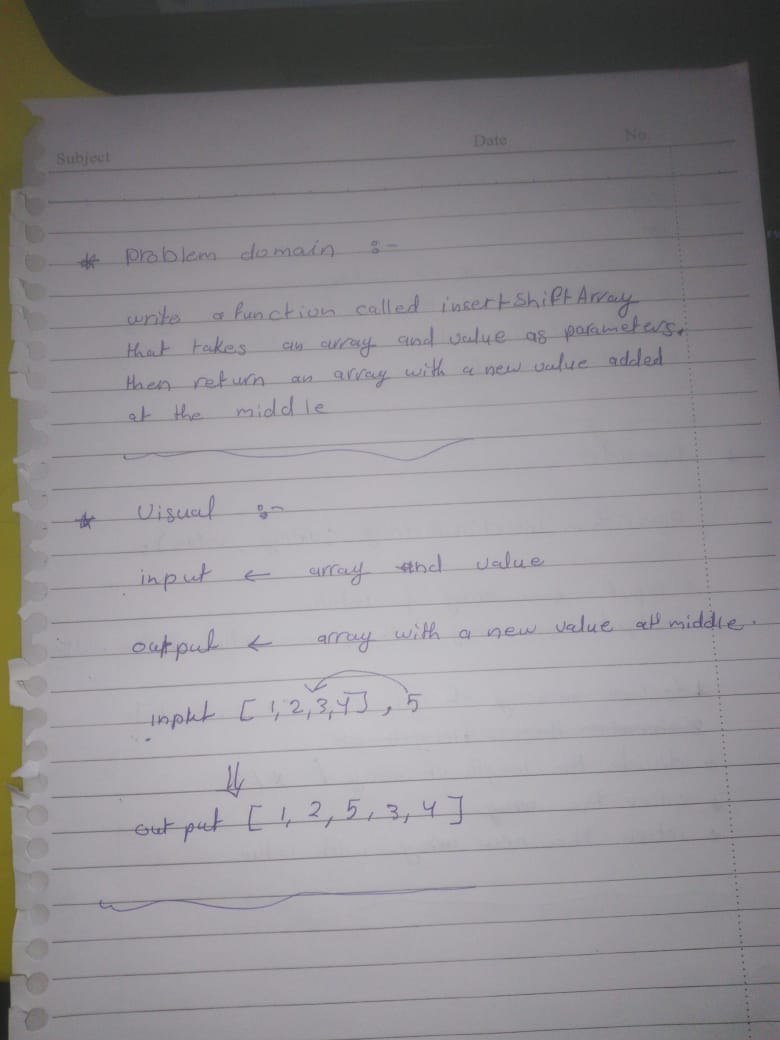 Subject
Date
No.
* problem domain :-
write a function called insertShiftArray
that takes an array and value as parameters.
then return an array with a new value added
at the middle
* Visual :-
input ← array and value
output ← array with a new value at middle.
input [1,2,3,4], 5
⇓
output [1,2,5,3,4]